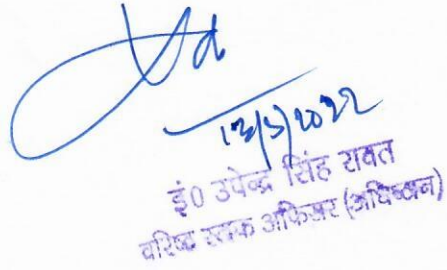 12/5/2022
इं० उपेन्द्र सिंह रावत
वरिष्ठ स्टाफ आफिसर (अधिष्ठान)